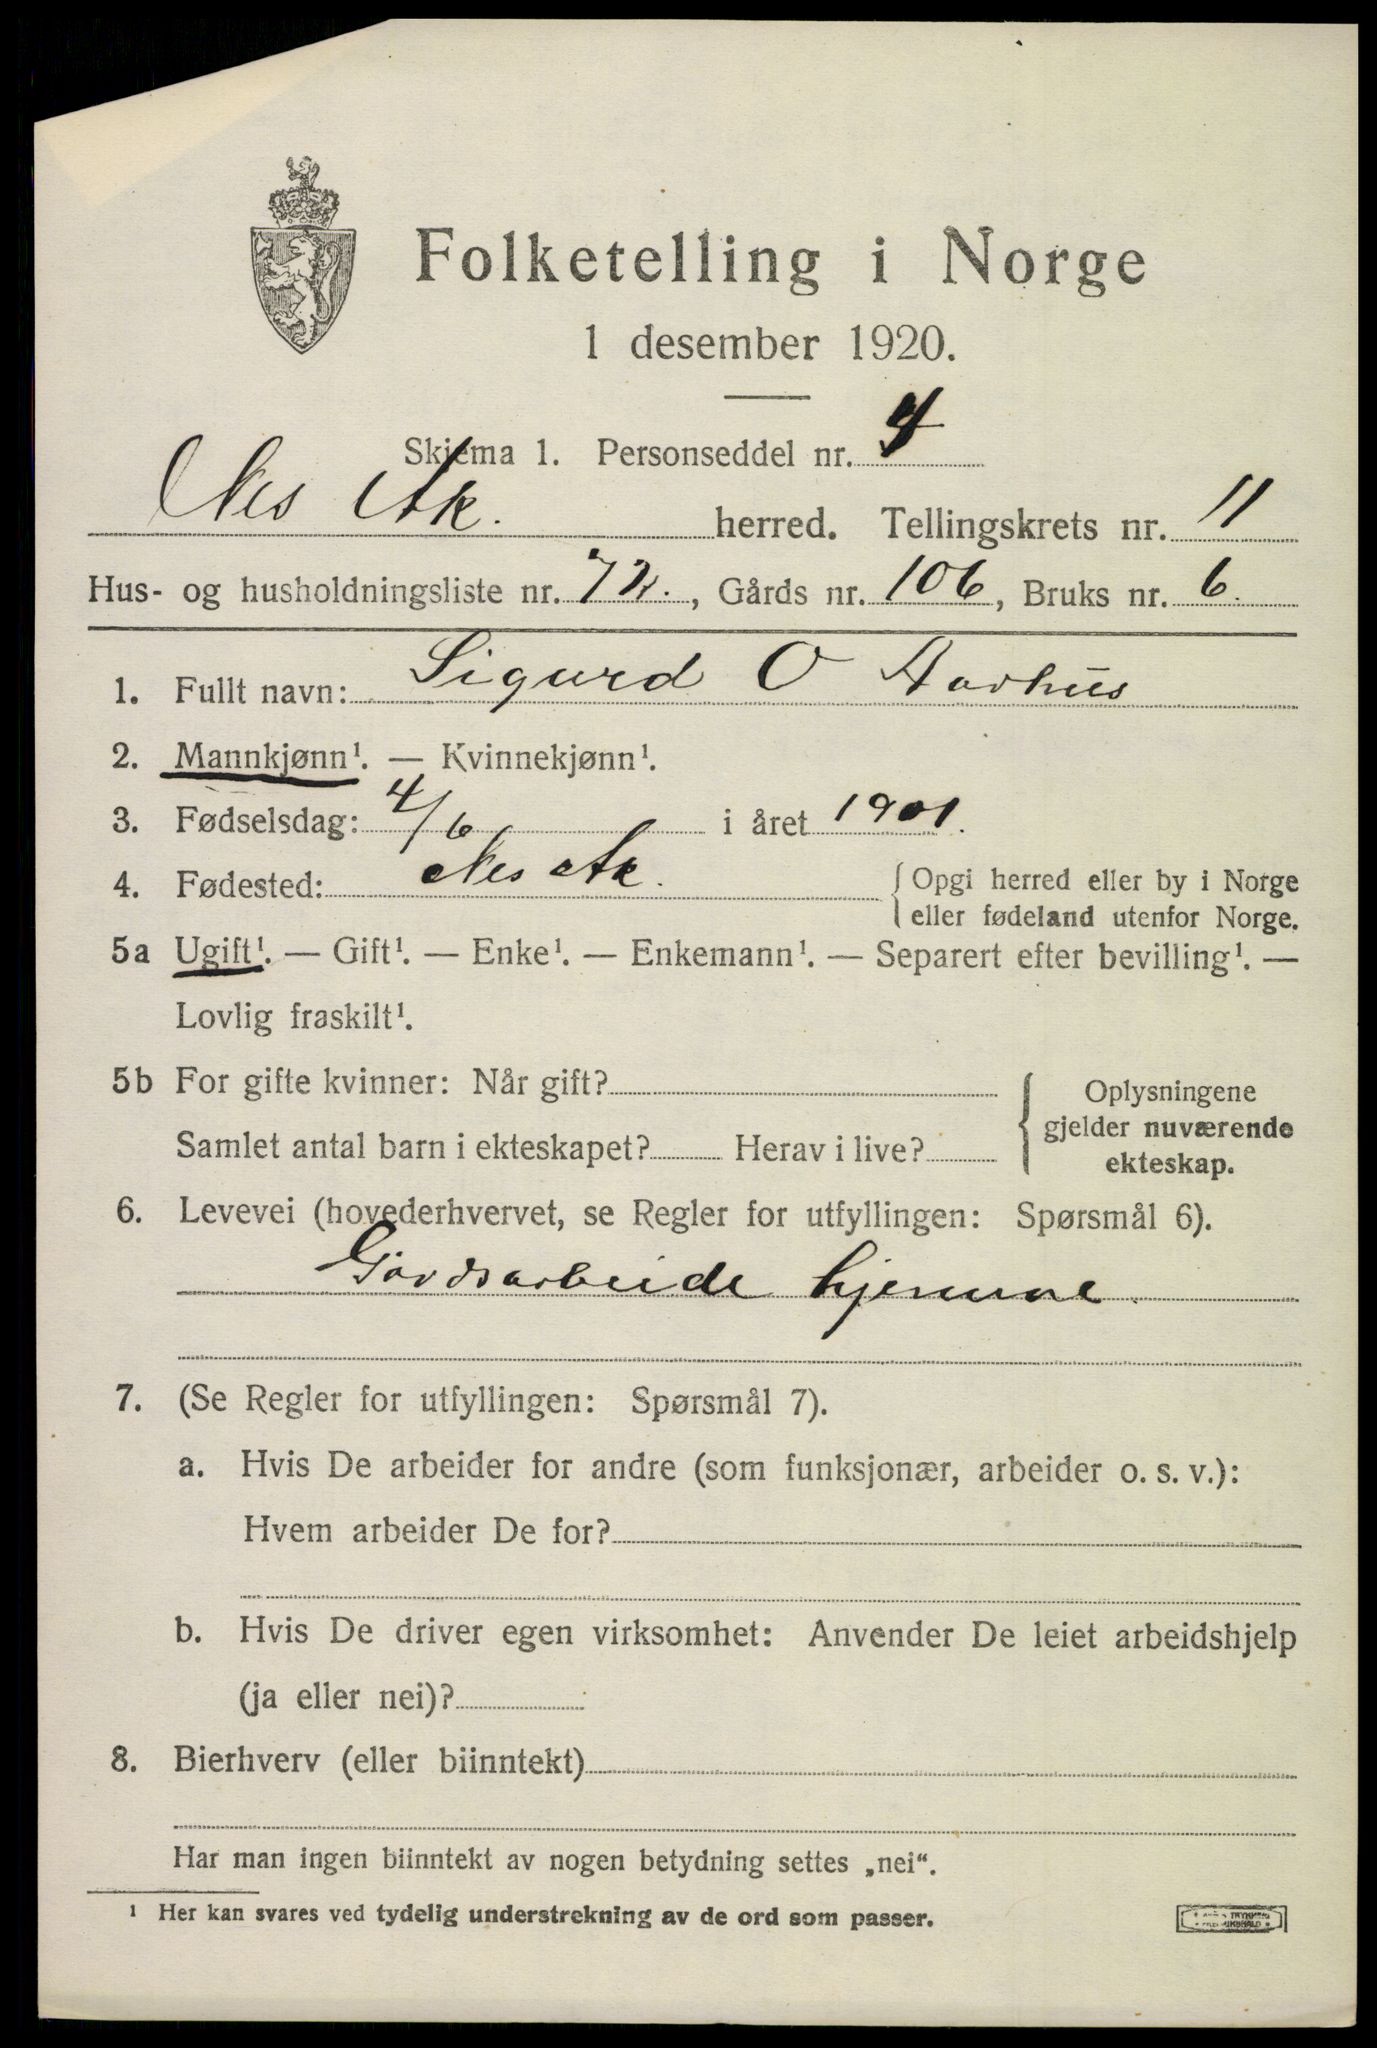 Folketelling i Norge
1 desember 1920.
Skjema 1. Personseddel nr. 4
Nes Ak. herred. Tellingskrets nr. 11
Hus- og husholdningsliste nr. 72., Gårds nr. 106, Bruks nr. 6.
1. Fullt navn: Sigurd O Aarhus
2. Mannkjønn¹. — Kvinnekjønn¹.
3. Fødselsdag: 4/6 i året 1901.
4. Fødested: Nes Ak. { Opgi herred eller by i Norge
eller fødeland utenfor Norge.
5a Ugift¹. — Gift¹. — Enke¹. — Enkemann¹. — Separert efter bevilling¹. —
Lovlig fraskilt¹.
5b For gifte kvinner: Når gift? { Oplysningene
gjelder nuværende
Samlet antal barn i ekteskapet? Herav i live? ekteskap.
6. Levevei (hovederhvervet, se Regler for utfyllingen: Spørsmål 6).
Gårdsarbeide hjemme.
7. (Se Regler for utfyllingen: Spørsmål 7).
a. Hvis De arbeider for andre (som funksjonær, arbeider o. s. v.):
Hvem arbeider De for?
b. Hvis De driver egen virksomhet: Anvender De leiet arbeidshjelp
(ja eller nei)?
8. Bierhverv (eller biinntekt)
Har man ingen biinntekt av nogen betydning settes „nei“.
¹ Her kan svares ved tydelig understrekning av de ord som passer.